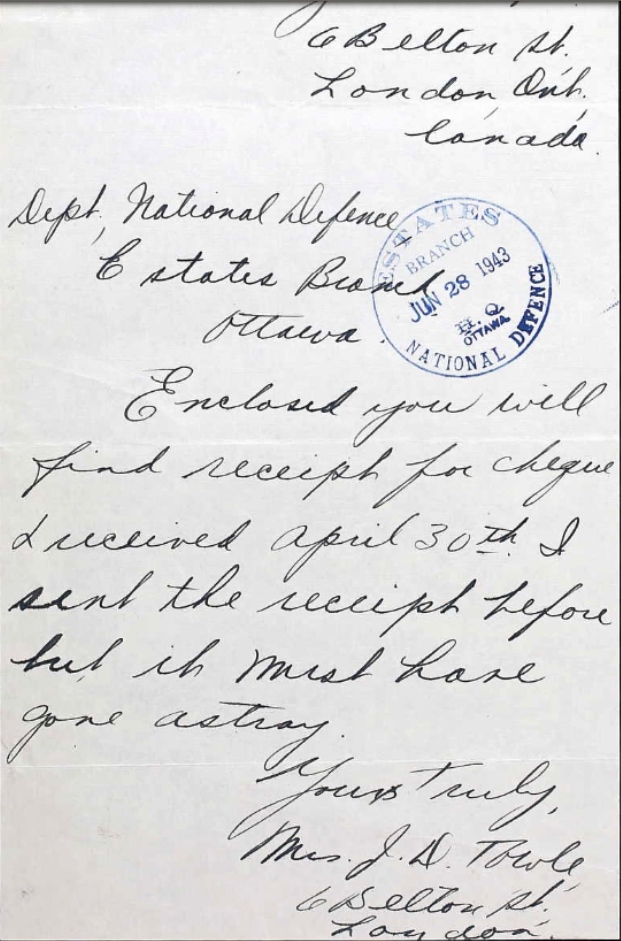 6 Belton St.
London, Ont.
Canada.
Dept, National Defence
Estates Branch
Ottawa.
ESTATES
BRANCH
JUN 28 1943
H. Q.
OTTAWA.
NATIONAL DEFENCE
Enclosed you will
find receipt for cheque
I received April 30th. I
sent the receipt before
but it must have
gone astray.
Yours Truly,
Mrs. J. D. Towle,
6 Belton St.
London.